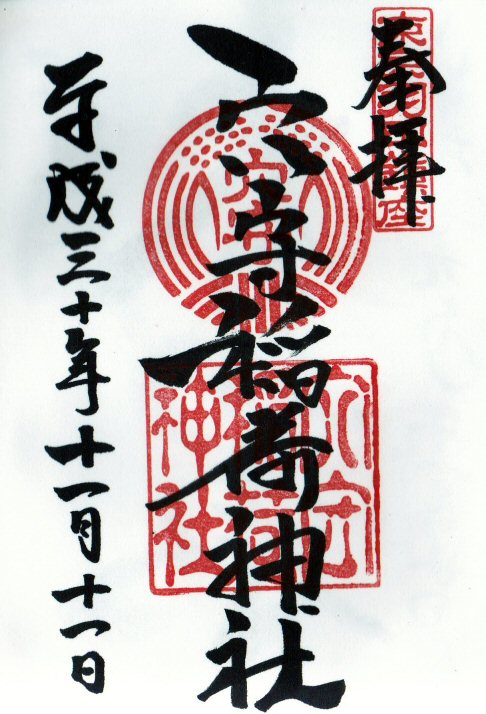 奉拝
東京羽田鎮座
穴守稲荷神社
穴守
穴守
稲荷
神社
平成三十年十一月十一日